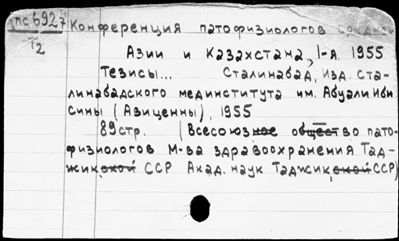 пс6927
I2
Конференция патофизиологов Средней
Азии и Казахстана, I-я. 1955
Тезисы... Сталинабад, Изд. Ста-
линабадского мединститута им. Абуали Ибн
Сины (Авиценны), 1955
89стр. (Всесоюзное общество пато-
физиологов М-ва здравоохранения Тад-
жикской ССР Акад. наук Таджикской ССР)